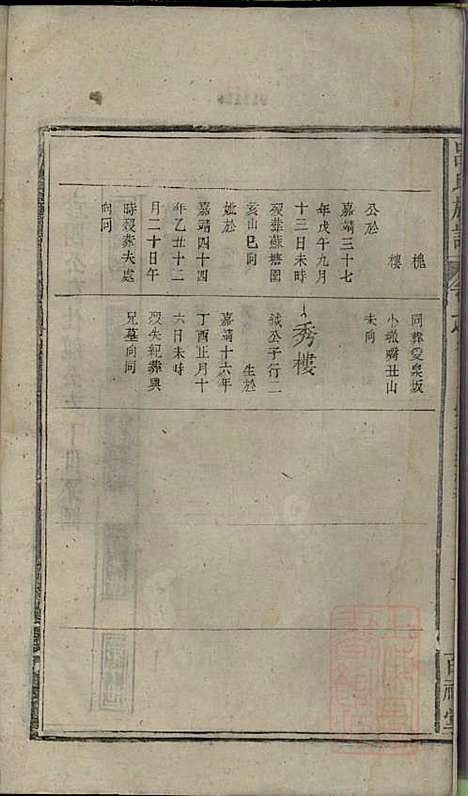 槐
樓
公於
嘉靖三十七
年戊午九月
十三日未時
歿葬蘇塘園
亥山巳向
妣於
嘉靖四十四
年乙丑十二
月二十日午
時歿葬夫處
向同
同葬愛泉坂
小墩嘴丑山
未向
秀樓
鉞公子行二
生於
嘉靖十六年
丁酉正月十
六日未時
歿失紀葬與
兄墓向同